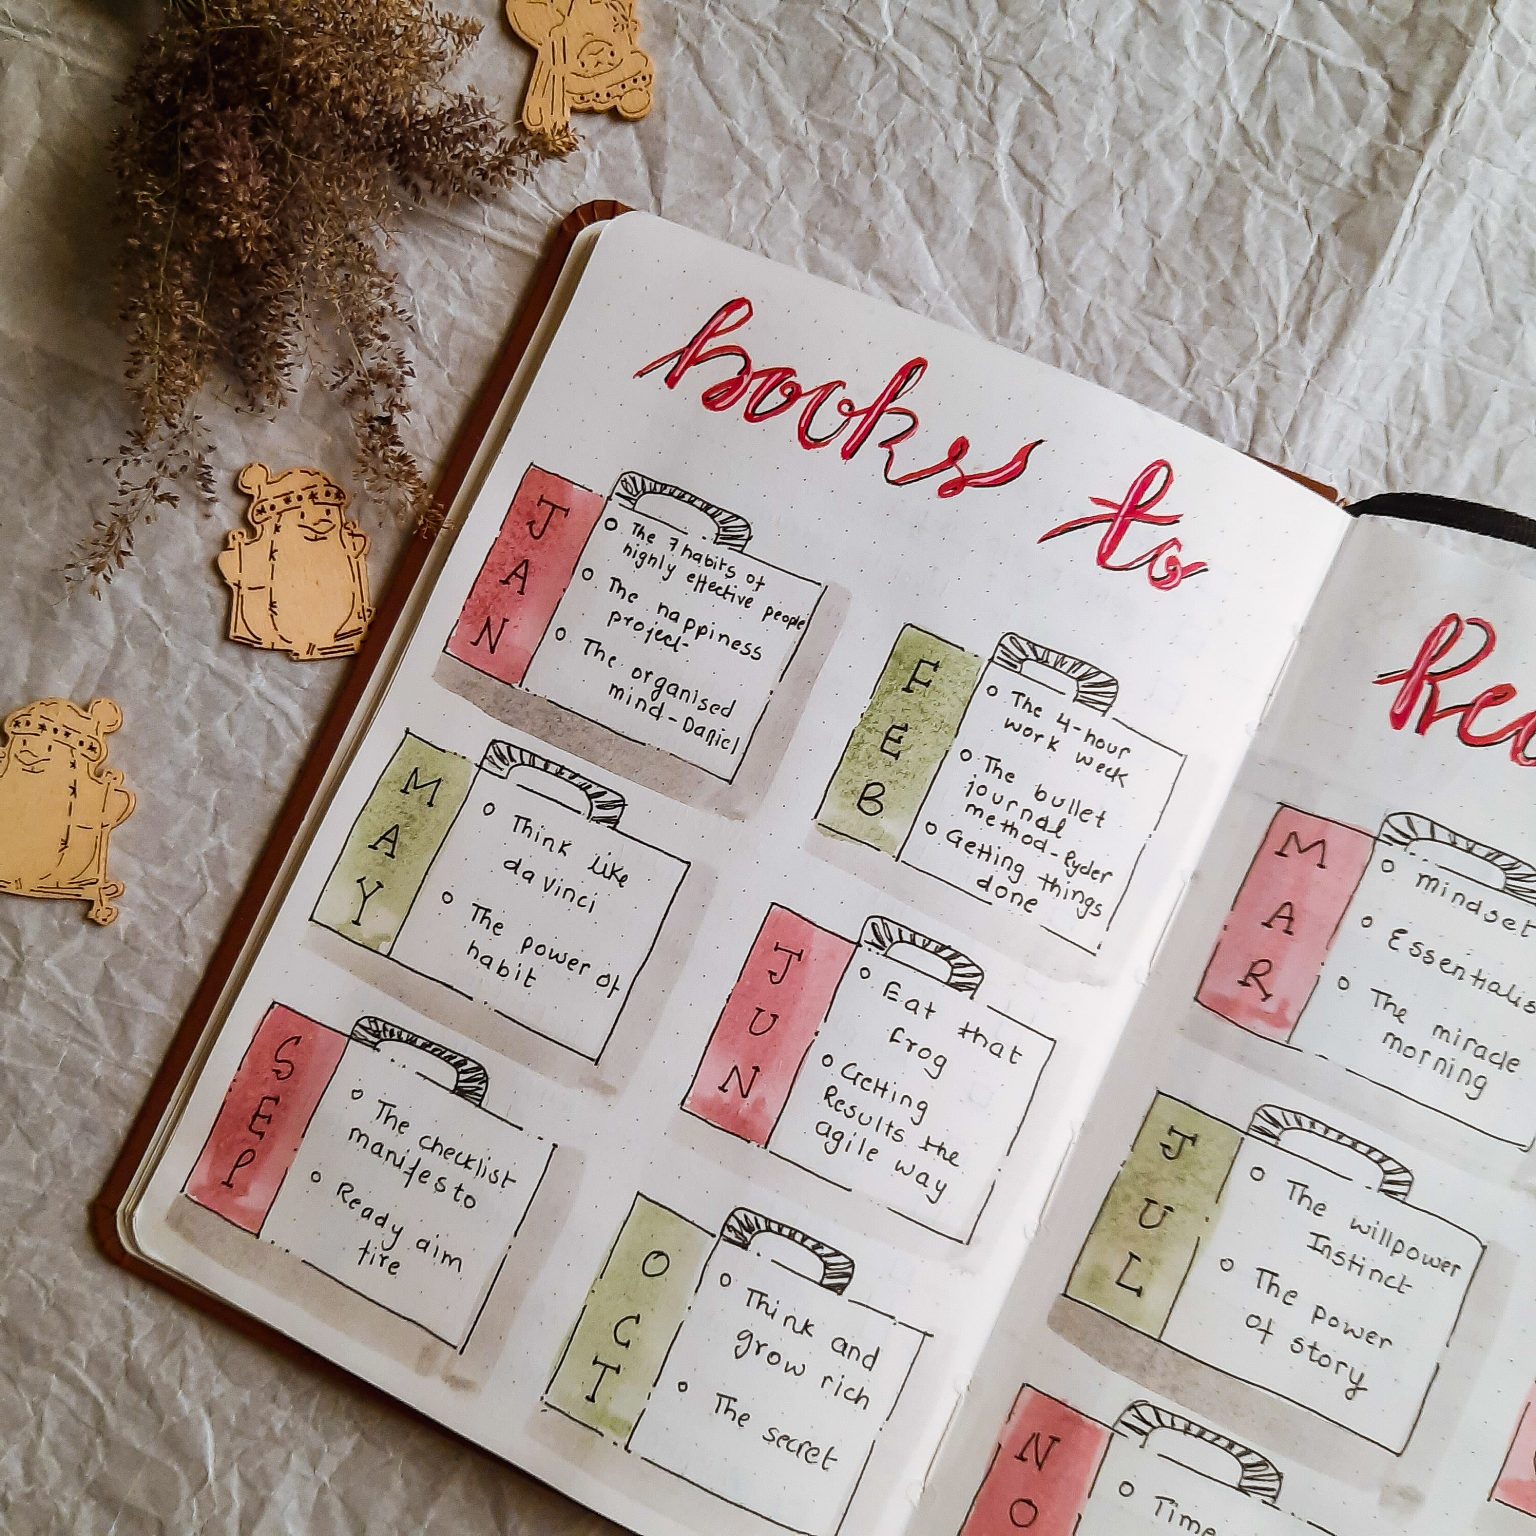 books to
Rea
JAN
The 7 habits of
highly effective people
The happiness
project
The organised
mind - Daniel
FEB
The 4-hour
work week
The bullet
journal
method - Ryder
Getting things
done
MAR
mindset
Essentialis
The miracle
morning
MAY
Think like
da vinci
The power of
habit
JUN
Eat that
frog
Getting
Results the
agile way
JUL
The willpower
Instinct
The power
of story
SEP
The checklist
manifesto
Ready aim
fire
OCT
Think and
grow rich
The secret
NO
Time